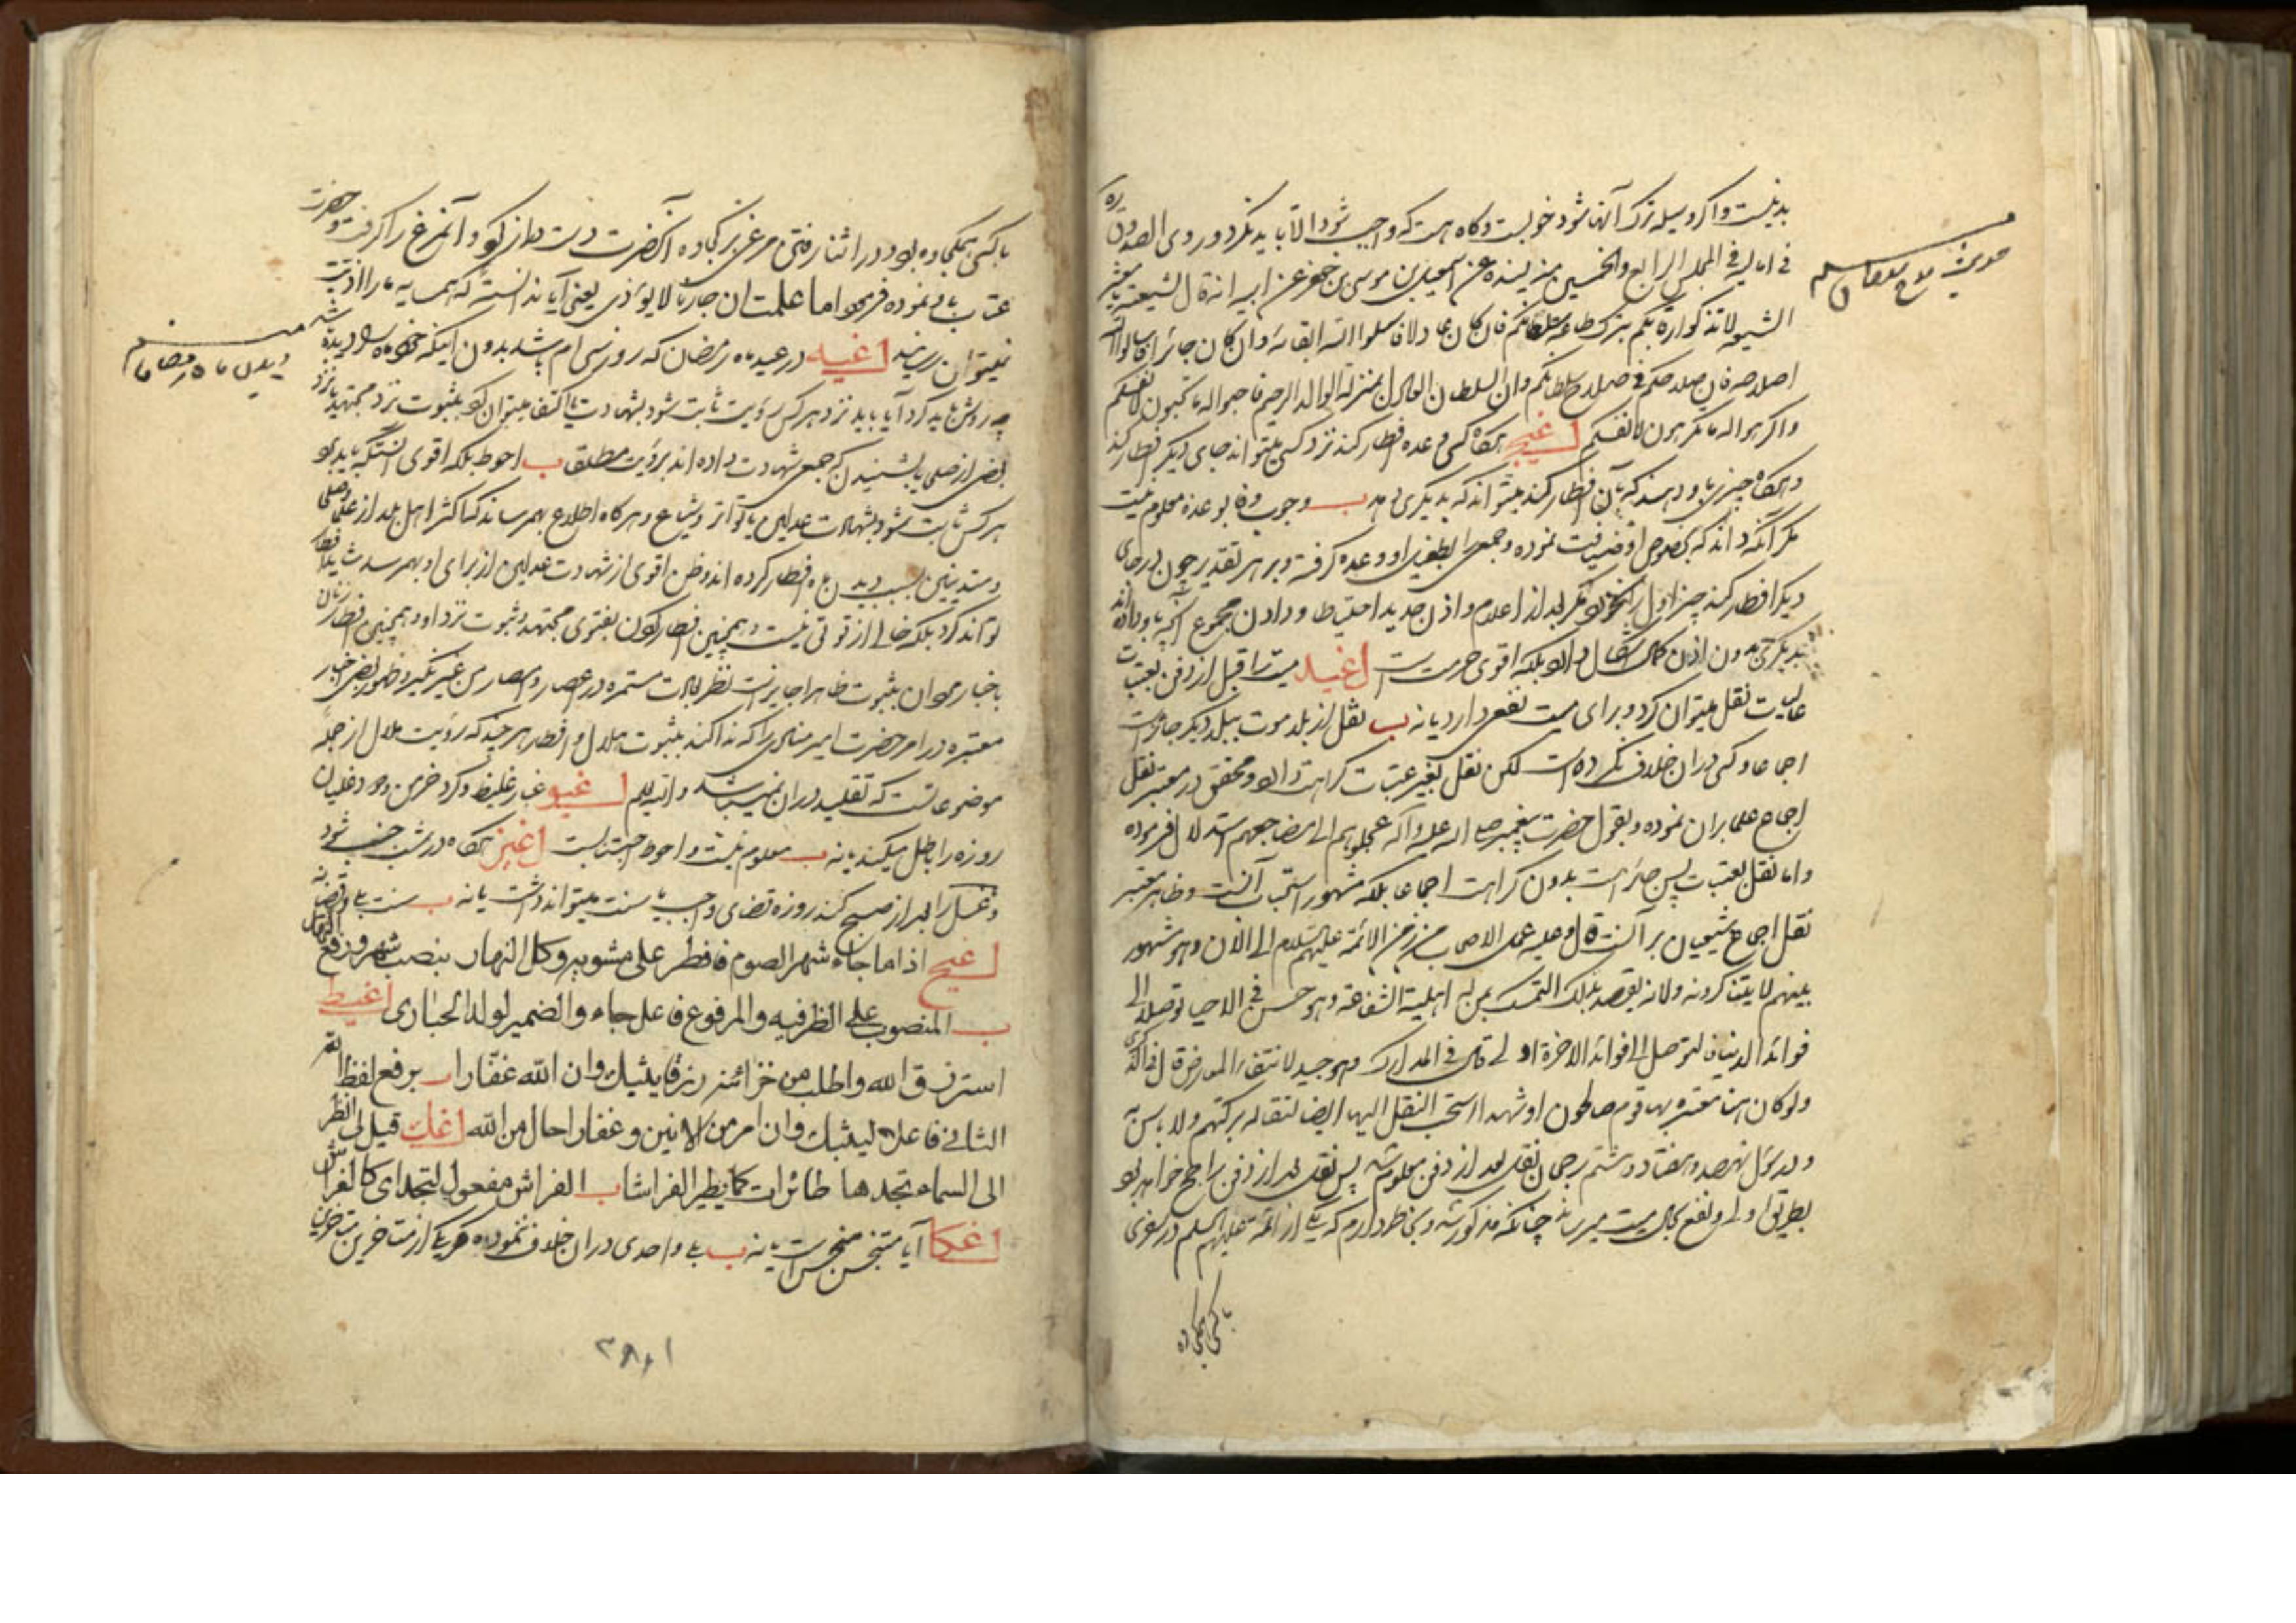 بد نیست و اگر وسیله ترک آنها شود خوبست و گاه هست که واجب شود الا باید نکرد و روی الصدوق ره
فی امالیه فی المجلس الرابع والخمسین بسنده عن اسمعیل بن موسی بن جعفر عن ابیه انه قال لشیعته یا معشر
الشیعه لا تذلوا رقابکم بترک طاعه سلطانکم فان کان عادلا فاسلوا الله ابقائه وان کان جائرا فاسالوا الله
اصلاحه فان صلاحکم فی صلاح سلطانکم وان السلطان العادل بمنزله الوالد الرحیم فاحبوا له ما تحبون لانفسکم
واکرهوا له ما تکرهون لانفسکم اغیج هرگاه کسی وعده افطار کند نزد کسی میتواند جای دیگر افطار کند
و هرگاه چیزی باو دهند که بآن افطار کند میتواند که بدیگری دهد ب وجوب وفا بوعده معلوم نیست
مگر آنکه داند که بخصوص او ضیافت نموده و جمعی را بطفیل او وعده گرفته و بر هر تقدیر چون در جای
دیگر افطار کند چیز اول را نخورد مگر بعد از اعلام و اذن جدید احتیاط و دادن مجموع آنچه باو داده اند
بدیگری بدون اذن کمال اشکال دارد بلکه اقوی حرمت است اغید میت را قبل از دفن بعتبات
عالیات نقل میتوان کرد و برای میت نفعی دارد یا نه ب نقل از بلد موت ببلد دیگر جایز است
اجماعا و کسی در آن خلاف نکرده است لکن نقل بغیر عتبات کراهت دارد و محقق در معتبر نقل
اجماع علما بر آن نموده و بقول حضرت پیغمبر صلی الله علیه وآله عجلوهم الی مضاجعهم استدلال فرموده
و اما نقل بعتبات پس جایز است بدون کراهت اجماعا بلکه مشهور استحباب آنست و ظاهر معتبر
نقل اجماع شیعیان بر آنست قال وعلیه عمل الاصحاب من زمن الائمه علیهم السلام الی الان وهو مشهور
بینهم لا یتناکرونه ولانه یقصد بذلک التمسک بمن له اهلیة الشفاعة وهو حسن فی الاحیاء توصلا الی
فوائد الدنیا فالتوصل الی فوائد الاخرة اولی قال فی المدارک وهو جید لانتفاء المعارض قال فی الذکری
ولو کان هناک مقبرة بها قوم صالحون او شهداء استحب النقل الیها ایضا لتناله برکتهم ولا باس به
و در سؤال نهصد و هفتاد و ششم رجحان نقل بعد از دفن معلوم شد پس نقل بعد از دفن راجح خواهد بود
بطریق اولی و نفع بحال میت میرساند چنانکه مذکور شد و بخاطر دارم که یکی از ائمه علیهم السلم در سفری
با کسی همکجاوه
حدیث
با کسی همکجاوه بود در اثناء رفتن مرغی بر کجاوه آنحضرت دست دراز کرد و آنمرغ را گرفت و حضرت
عتاب باو نموده فرمود اما علمت ان جارنا لا یؤذی یعنی آیا ندانستهٔ که همسایه ما را اذیت
نمیتوان رسانید اغیه در عید ماه رمضان که روز سی ام باشد بدون اینکه خود ماه را دیده باشد
چه روش باید کرد آیا باید نزد هر کس رؤیت ثابت شود بشهادت یا اکتفا میتوان کرد بثبوت نزد مجتهد یا نزد
بعضی از صلحا یا بشنیدن که جمعی شهادت داده اند برؤیت مطلقا ب احوط بلکه اقوی آنستکه باید بر
هر کس ثابت شود بشهادت عدلین یا تواتر و شیاع و هرگاه اطلاع بهم رساند که اکثر اهل بلد از علما و صلحا
و متدینین بسبب دیدن ماه افطار کرده اند و ظن اقوی از شهادت عدلین از برای او بهم رسد شاید افطار
تواند کرد بلکه خالی از قوتی نیست و همچنین افطار کردن بفتوی مجتهد و ثبوت نزد او و همچنین افطار زنان
باخبار مردان بثبوت ظاهرا جایز است نظر بعادت مستمره در اعصار و امصار من غیر نکیر و ظهور بعضی اخبار
معتبره در امر حضرت امیر منادی را که ندا کند بثبوت هلال و افطار هر چند که رؤیت هلال از جمله
موضوعاتست که تقلید در آن نمیباشد والله یعلم اغیو غبار غلیظ و گرد خرمن و دود غلیان
روزه را باطل میکند یا نه ب معلوم نیست و احوط اجتنابست اغیز هرگاه در شب جنب شود
و غسل را بعد از صبح کند روزه قضای واجب یا سنت میتواند داشت یا نه ب سنت بلی و قضا نه
اغیح اذا ما جاء شهر الصوم فافطر علی مشویه وکل النهار بنصب شهر ورفع النهار
ب المنصوب علی الظرفیه والمرفوع فاعل جاء والضمیر لولد الحباری اغیط
استرزق الله واطلب من خزائنه رزقا یثیبک وان الله غفارا ب برفع لفظ الله
الثانی فاعلا لیثیبک وان امر من الانین وغفارا حال من الله اغک قیل لی انظر
الی السماء تجدها طائرات کما یطیر الفراشا ب الفراش مفعول لتجد ای کالفراش
اغکا آیا متنجس منجس است یا نه ب بلی واحدی در آن خلاف ننموده مگر یکی از متاخرین متاخرین
دیدن ماه رمضان